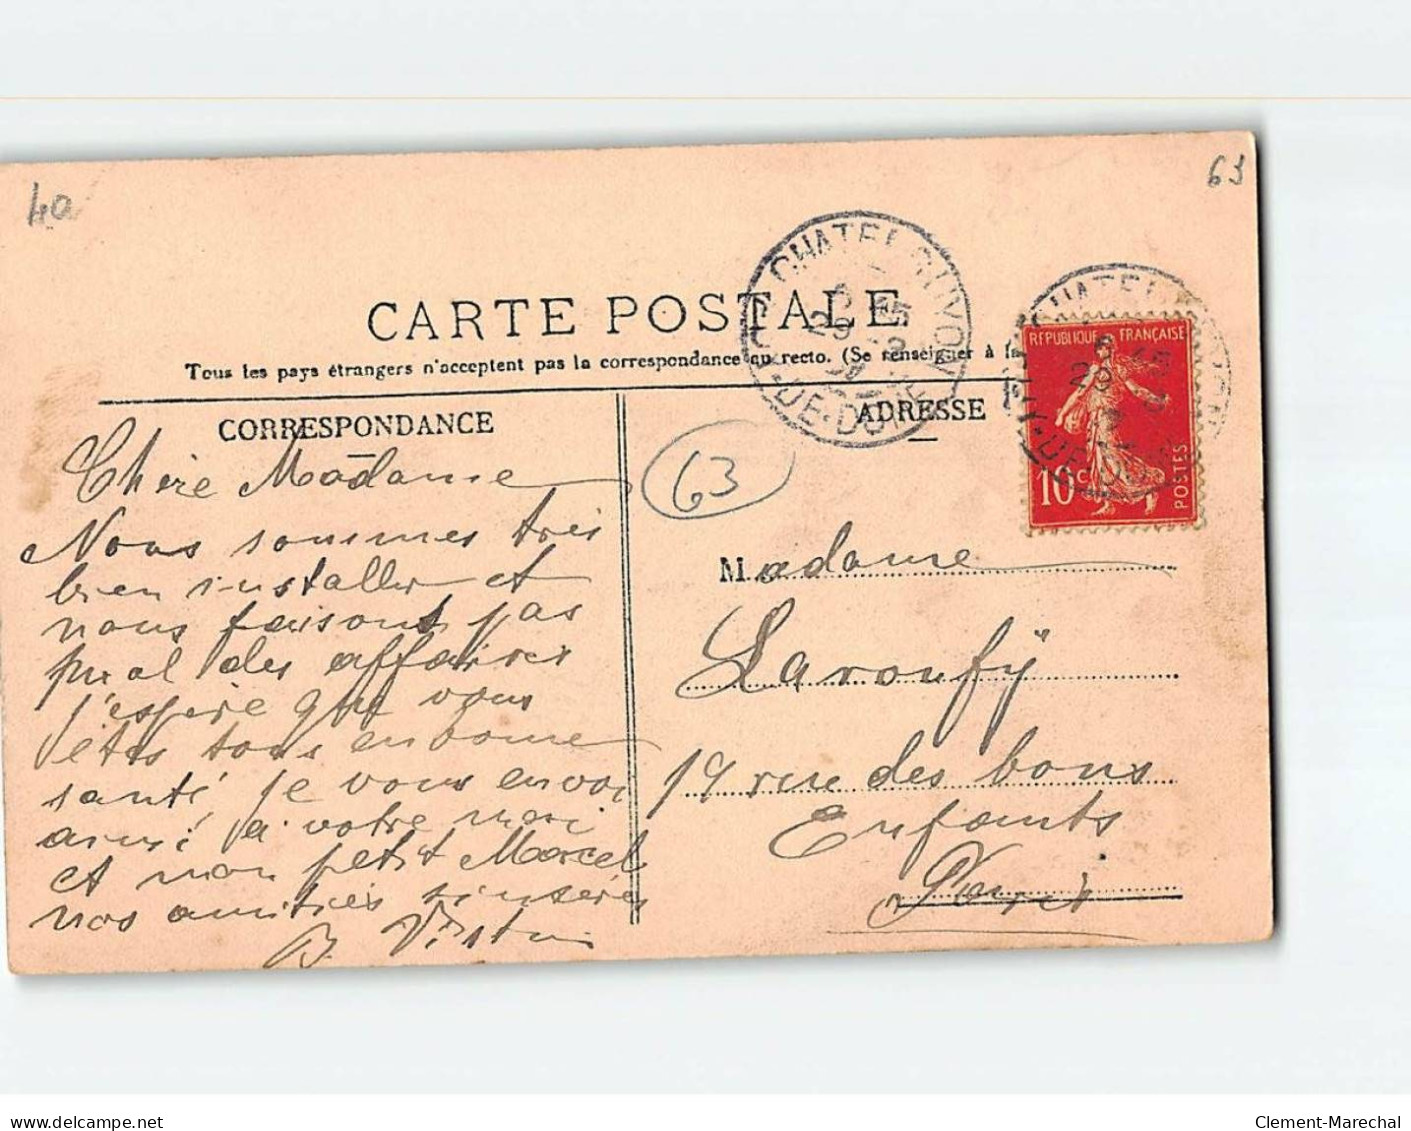 4a
63
CHATEL GUYON
CARTE POSTALE
Tous les pays étrangers n'acceptent pas la correspondance au recto. (Se renseigner à la
CORRESPONDANCE
ADRESSE
RÉPUBLIQUE FRANÇAISE
10c
POSTES
63
Chère Madame
Nous sommes très
bien installer et
nous faisons pas
mal des affaires
j'espère que vous
êtes tous en bonne
santé, je vous envoi
ainsi à votre mari
et mon petit Marcel
nos amitiés sinsères
Madame
Laroufÿ
19 rue des bons
Enfants
Paris
delcampe.net
Clement-Marechal